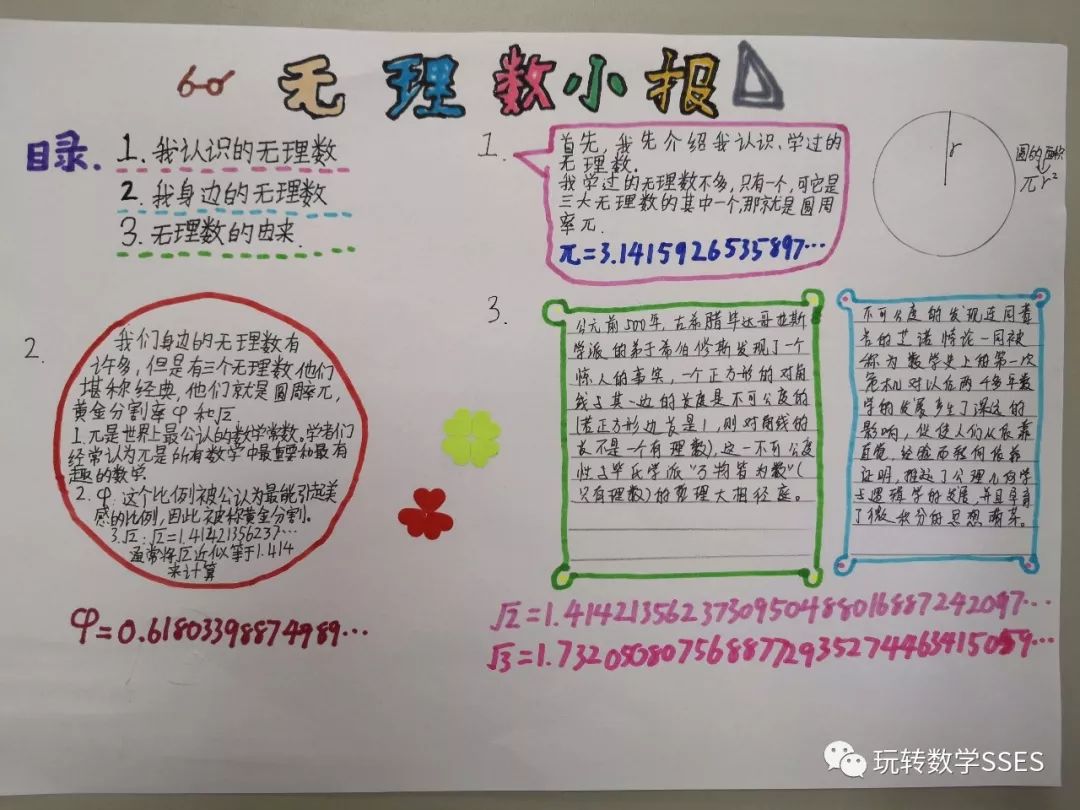 无理数小报
目录.
1.我认识的无理数
2.我身边的无理数
3.无理数的由来.
1.
首先,我先介绍我认识、学过的
无理数.
我学过的无理数不多,只有一个,可它是
三大无理数的其中一个,那就是圆周
率π.
π=3.1415926535897…
r
圆的面积
πr²
2.
我们身边的无理数有
许多,但是有三个无理数他们
堪称经典,他们就是圆周率π,
黄金分割率φ和√2
1.π是世界上最公认的数学常数。学者们
经常认为π是所有数学中最重要和最有
趣的数字.
2.φ.这个比例被公认为最能引起美
感的比例,因此被称黄金分割。
3.√2:√2=1.41421356237…
通常将√2近似等于1.414
来计算
φ=0.61803398874989…
3.
公元前500年,古希腊毕达哥拉斯
学派的弟子希伯修斯发现了一个
惊人的事实,一个正方形的对角
线与其一边的长度是不可公度的
(若正方形边长是1,则对角线的
长不是一个有理数),这一不可公度
性与毕氏学派“万物皆为数”(
只有理数)的哲理大相径庭。
不可公度的发现连同
的芝诺悖论一同被
称为数学史上的第一次
危机,对以后两千多年数
学的发展产生了深远的
影响,促使人们从依靠
直觉、经验而转向依靠
证明,推这了公理几何学
与逻辑学的发展,并且孕育
了微积分的思想萌芽。
√2=1.4142135623730950488016887242097…
√3=1.7320508075688772935274463415059…
玩转数学SSES